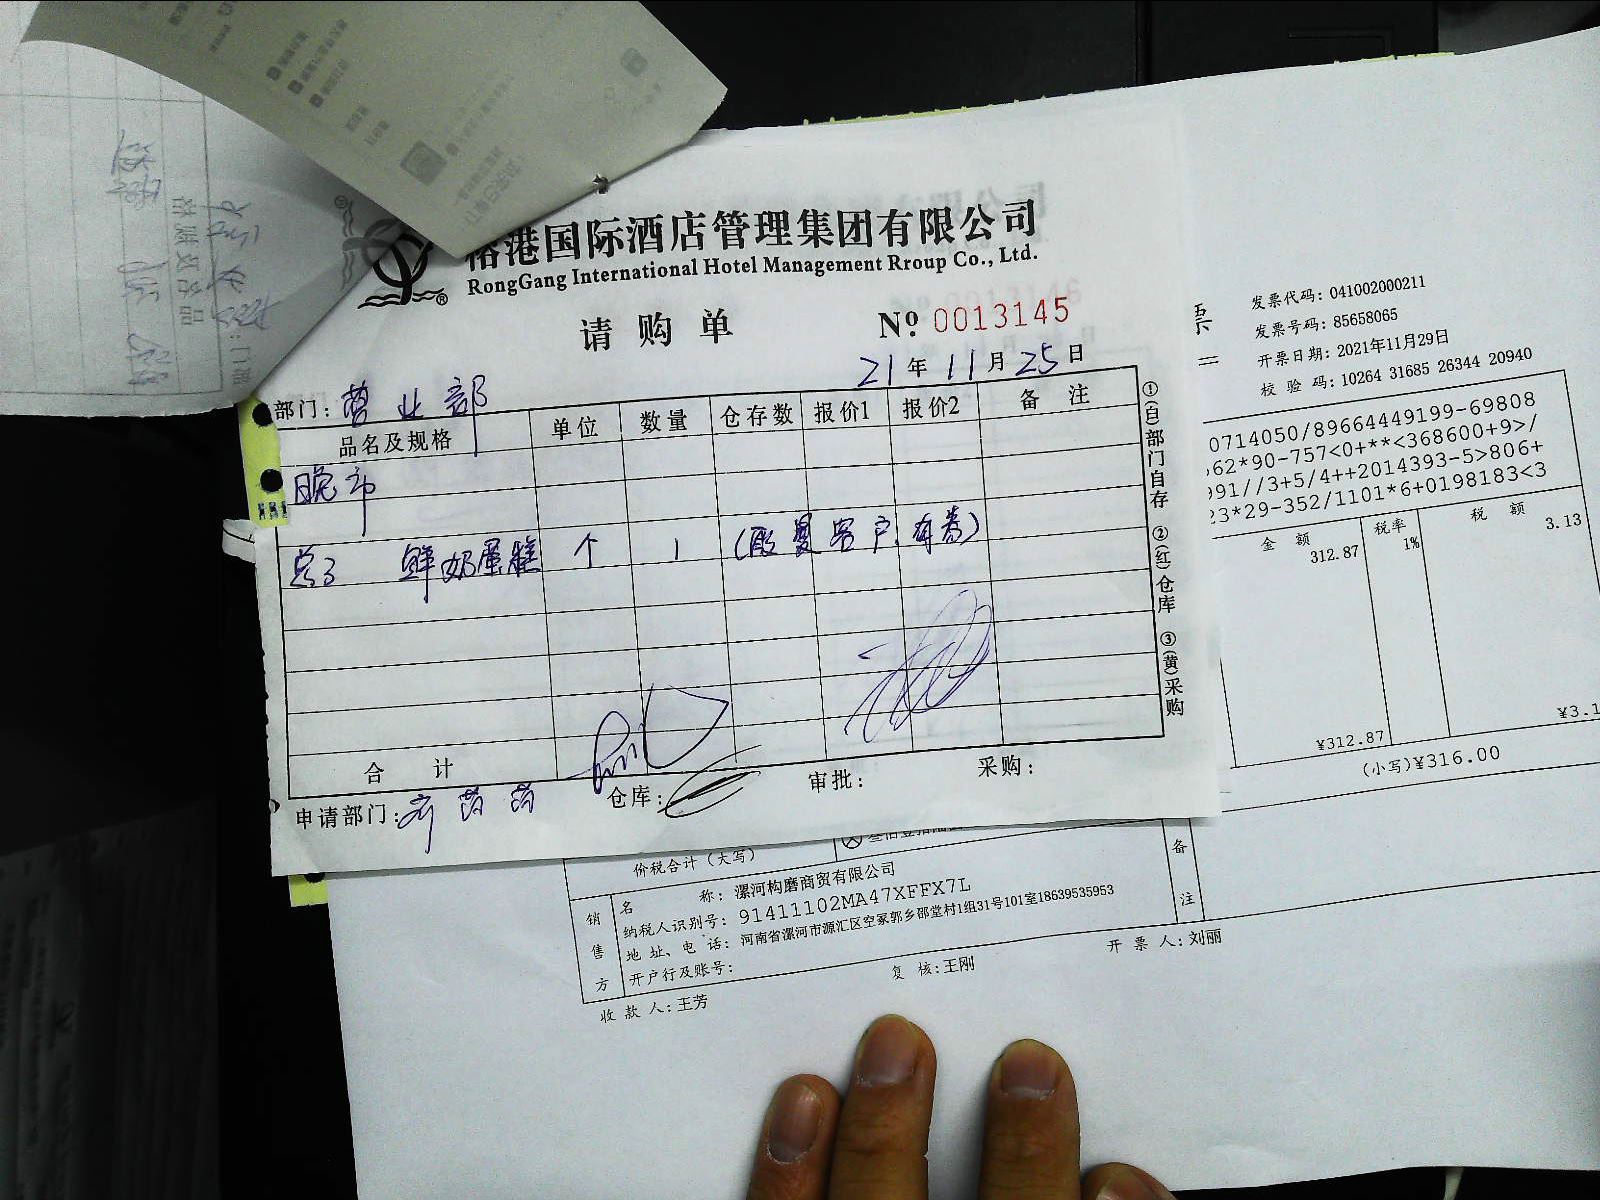 港国际酒店管理集团有限公司
RongGang International Hotel Management Rroup Co., Ltd.
请购单 Nº 0013145
21年11月25日
部门：营业部
品名及规格 单位 数量 仓存数 报价1 报价2 备注
晚市
总3 鲜奶蛋糕 个 1 客户
合计
申请部门： 仓库： 审批： 采购：
①(白)部门自存 ②(红)仓库 ③(黄)采购
票
发票代码：041002000211
发票号码：85658065
开票日期：2021年11月29日
校验码：10264 31685 26344 20940
0714050/89664449199-69808
62*90-757<0+**<368600+9>/
991//3+5/4++2014393-5>806+
23*29-352/1101*6+0198183<3
金额 税率 税额
312.87 1% 3.13
¥312.87 ¥3.1
(小写)¥316.00
价税合计（大写）
销售方
名称：漯河构磨商贸有限公司
纳税人识别号：91411102MA47XFFX7L
地址、电话：河南省漯河市源汇区空冢郭乡邵堂村1组31号101室18639535953
开户行及账号：
备注
收款人：王芳 复核：王刚 开票人：刘丽